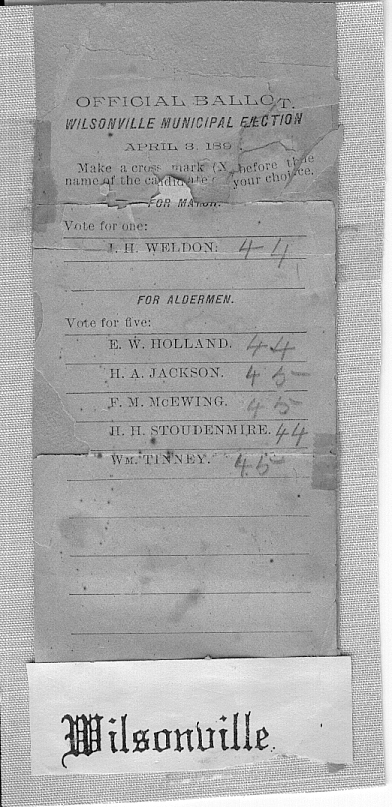 OFFICIAL BALLOT.
WILSONVILLE MUNICIPAL ELECTION
APRIL 3, 189
Make a cross mark (X before the
name of the candidate your choice.
FOR MAYOR.
Vote for one:
J. H. WELDON: 44
FOR ALDERMEN.
Vote for five:
E. W. HOLLAND. 44
H. A. JACKSON. 45
F. M. McEWING. 45
H. H. STOUDENMIRE. 44
WM. TINNEY. 45
Wilsonville.